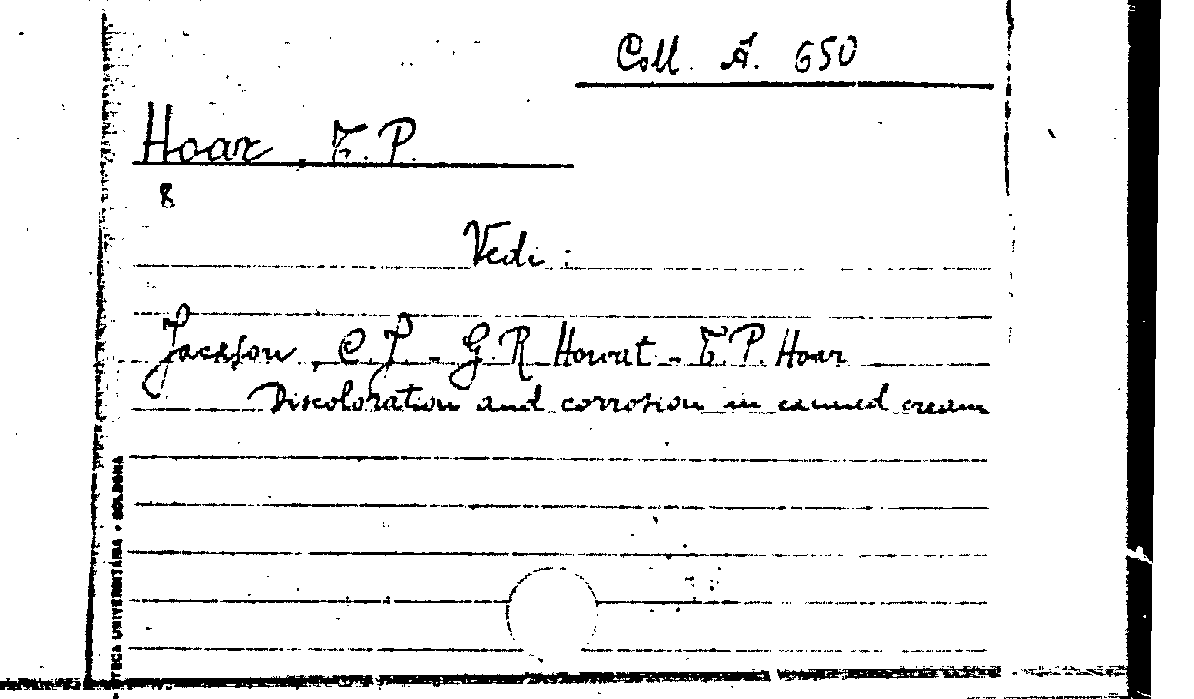 Coll. A. 650
Hoar, T. P.
8
Vedi :
Jackson, C. J. - G. R. Howat - T. P. Hoar
Discoloration and corrosion in canned cream
TECA UNIVERSITARIA • BOLOGNA